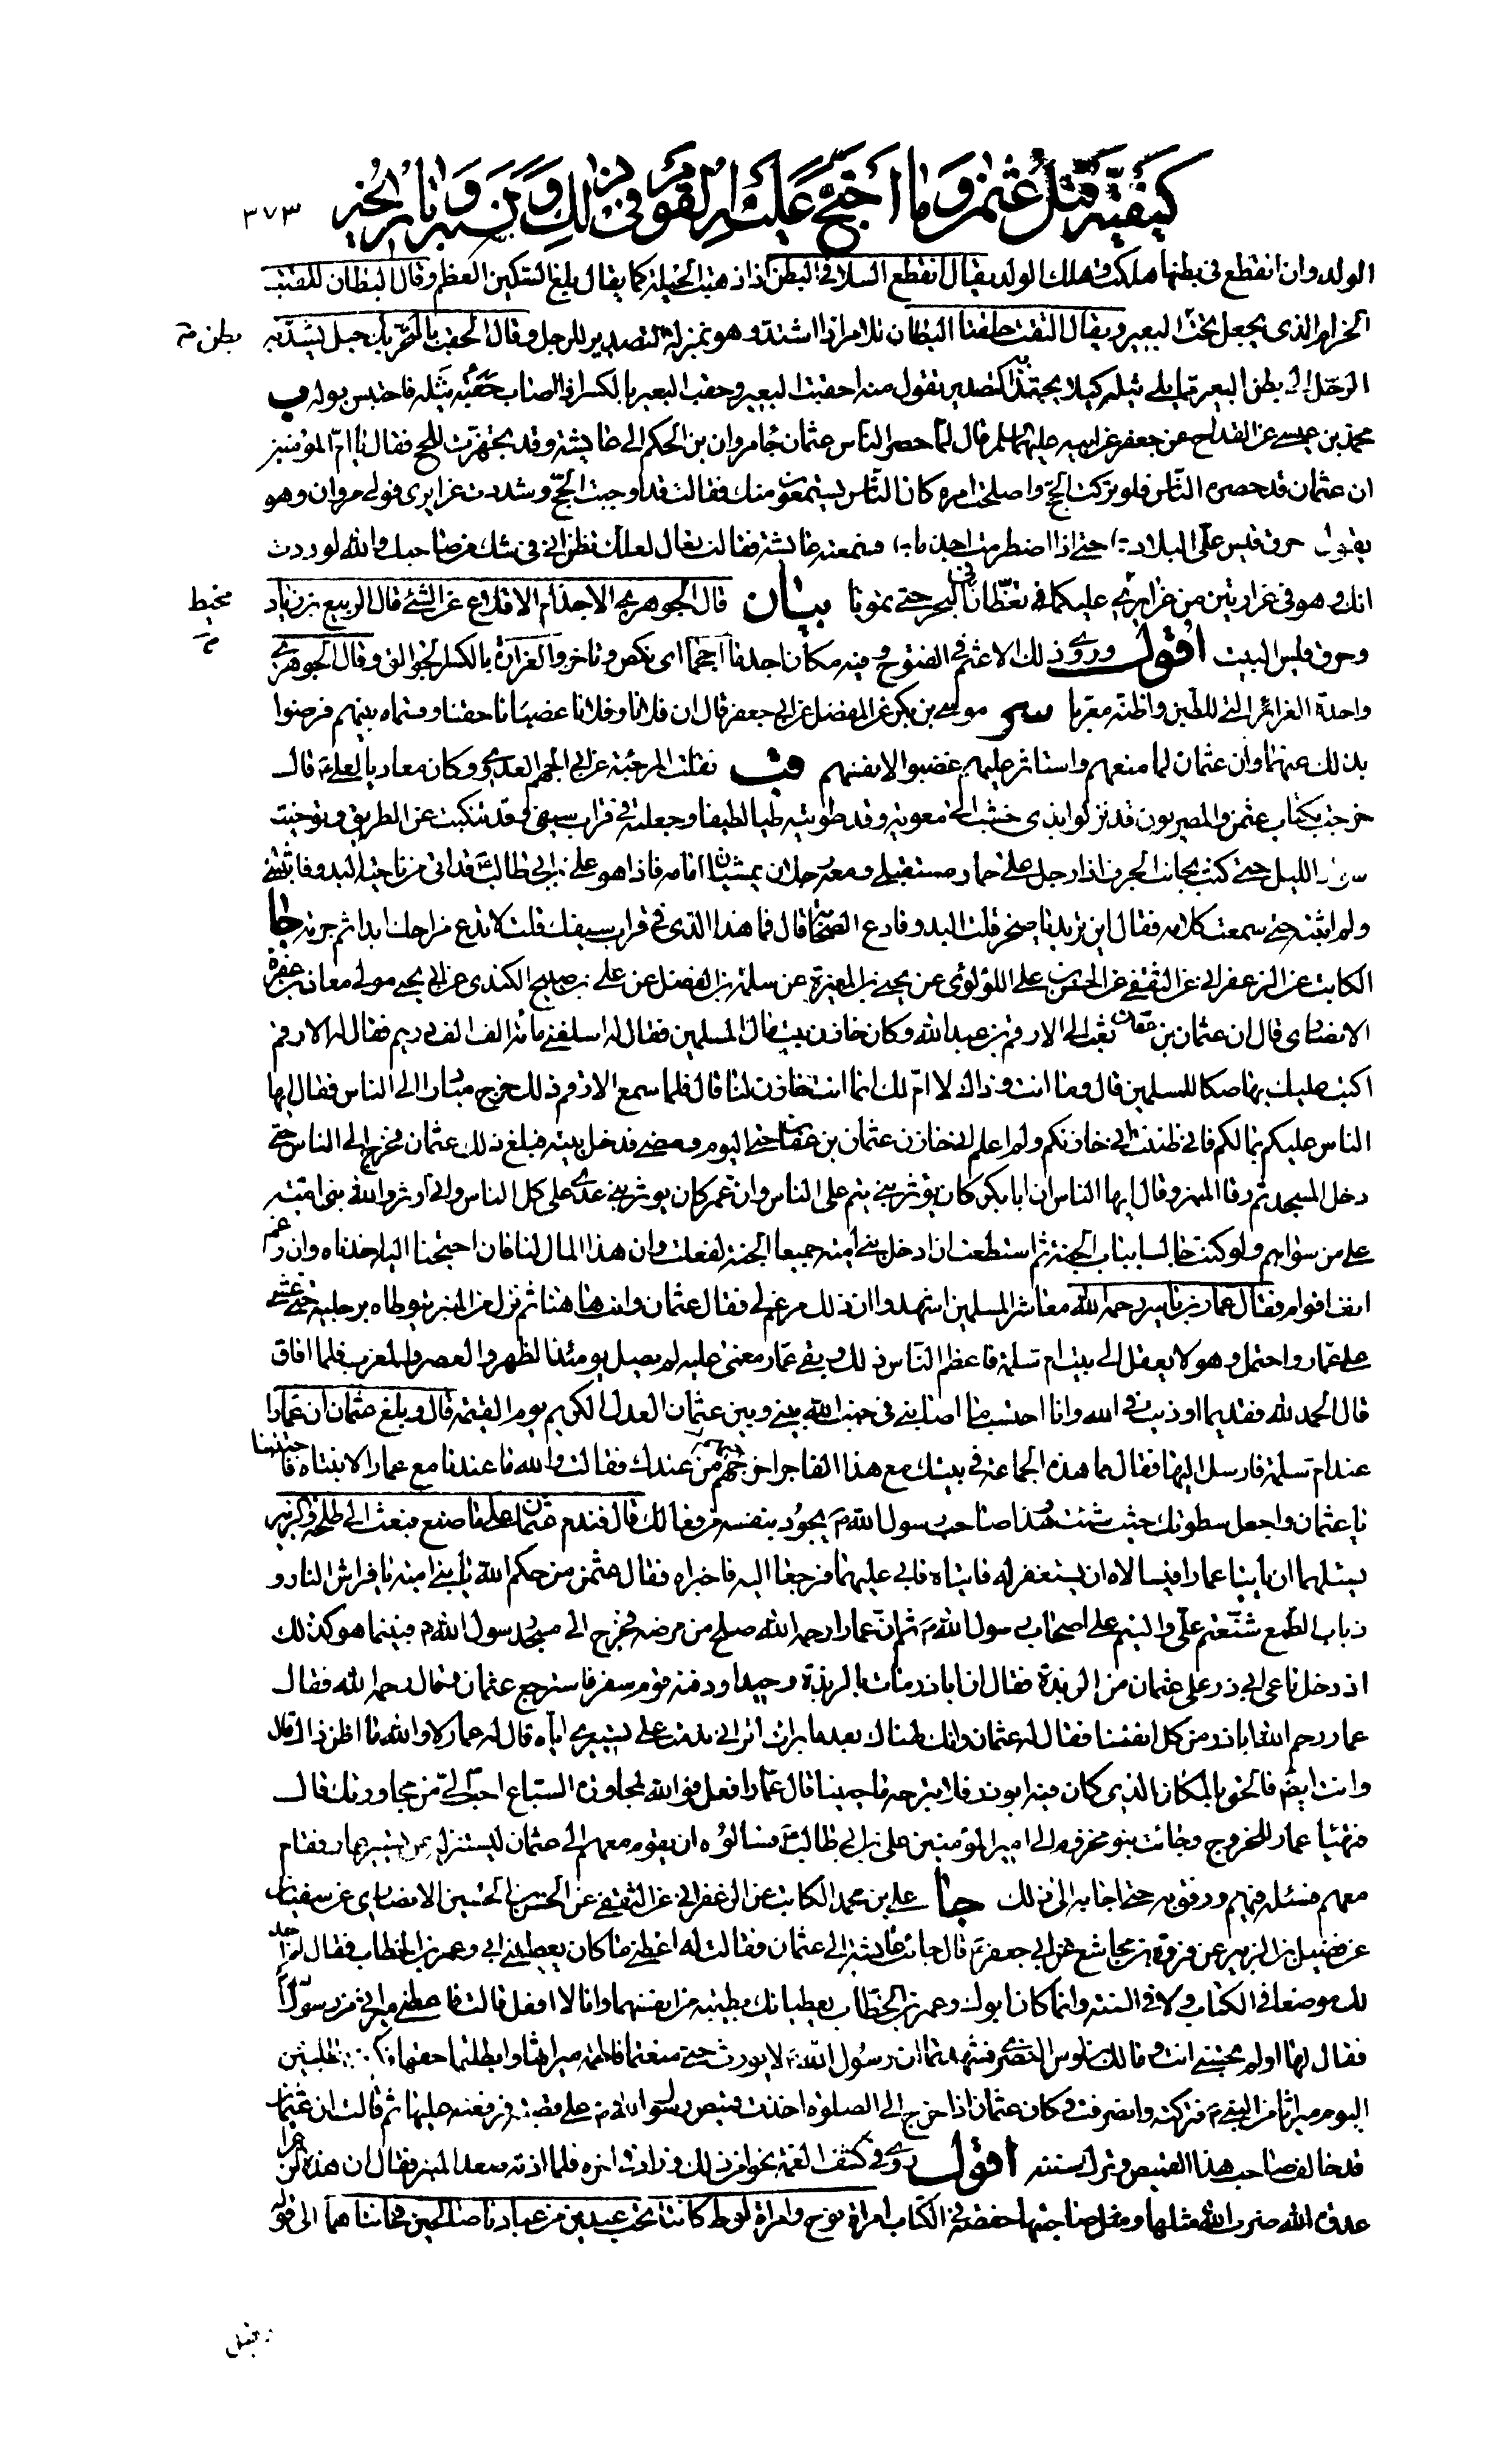 كيفية قتل عثمن وما احتج عليه القوم في ذلك ونسبه وتاريخه ٣٧٣
الولد وان انقطع في بطنها هلكت وهلك الولد يقال انقطع السلا في البطن اذا ذهبت الحيلة كما يقال بلغ السكين العظم وقال البطان للقتب
الحزام الذي يجعل تحت البعير ويقال التقت حلقتا البطان للامر اذا اشتد وهو بمنزلة التصدير للرحل وقال الحقب بالتحريك حبل يشد به
بطن صح
الرحل الى بطن البعير مما يلي ثيله كيلا يجتذبه التصدير تقول منه احقبت البعير وحقب البعير بالكسر اذا اصاب حقبه ثيله فاحتبس بوله ب
محمد بن عيسى عن القداح عن جعفر عن ابيه عليهما السلم قال لما حصر الناس عثمان جاء مروان بن الحكم الى عايشة وقد تجهزت للحج فقال يا ام المؤمنين
ان عثمان قد حصره الناس فلو تركت الحج واصلحت امره كان الناس يستمعون منك فقالت قد اوجبت الحج وشددت غرايري فولى مروان وهو
يقول حرق قيس على البلاد حتى اذا اضطرمت اجذما فسمعته عايشة فقالت تعال لعلك تظن اني في شك من صاحبك والله لوددت
انك وهو في غرارتين من غرايري عليكما في تغطان في البحر حتى تموتا بيان قال الجوهري الاجذام الاقلاع عن الشئ قال الربيع بن زياد
مخيط
وحرق قيس البيت اقول وروى ذلك الاعثم في الفتوح وفيه مكان اجذما احجما اى نكص وتاخر والغرارة بالكسر الجوالق وقال الجوهري
واحدة الغرائر التي للتبن واظنه معربا سر موسى بن بكر عن المفضل عن ابي جعفر قال ان فلانا وفلانا غصبانا حقنا وقسماه بينهم فرضوا
بذلك عنهما وان عثمان لما منعهم واستاثر عليهم غضبوا لانفسهم قب نقلت المرجئة عن ابي الجهم العدوي وكان معاديا لعلي ع قال
خرجت بكتاب عثمن والمصريون قد نزلوا بذي خشب الى معوية وقد طويته طيا لطيفا وجعلته في قراب سيفي وقد تنكبت عن الطريق وتوخيت
سواد الليل حتى كنت بجانب الجرف اذا رجل على حمار مستقبلي ومعه رجلان يمشيان امامه فاذا هو علي بن ابي طالب قد اتى من ناحية البدو فاثبتني
ولم اثبته حتى سمعت كلامه فقال اين تريد يا صخر قلت البدو فادع الصحابة قال فما هذا الذي في قراب سيفك قلت لا تدع مزاحك ابدا ثم جزته جا
الكاتب عن الزعفراني عن الثقفي عن الحسن بن علي اللؤلؤي عن يحيى بن المغيرة عن سلمة بن الفضل عن علي بن صبيح الكندي عن ابي يحيى مولى معاذ بن عفرة
الانصاري قال ان عثمان بن عفان بعث الى الارقم بن عبد الله وكان خازن بيت مال المسلمين فقال له اسلفني مائة الف الف درهم فقال له الارقم
اكتب عليك بها صكا للمسلمين قال وما انت وذاك لا ام لك انما انت خازن لنا قال فلما سمع الارقم ذلك خرج مبادرا الى الناس فقال ايها
الناس عليكم بمالكم فاني ظننت اني خازنكم ولم اعلم اني خازن عثمان بن عفان حتى اليوم ومضى فدخل بيته فبلغ ذلك عثمان فخرج الى الناس حتى
دخل المسجد ثم رقا المنبر وقال ايها الناس ان ابا بكر كان يؤثر بني تيم على الناس وان عمر كان يؤثر بني عدي على كل الناس واني اوثر والله بني امية
على من سواهم ولو كنت جالسا بباب الجنة ثم استطعت ان ادخل بني امية جميعا الجنة لفعلت وان هذا المال لنا فان احتجنا اليه اخذناه وان رغم
انف اقوام فقال عمار بن ياسر رحمه الله معاشر المسلمين اشهدوا ان ذلك مرغم لي فقال عثمان وانت هاهنا ثم نزل عن المنبر يتوطاه برجليه حتى غشي
على عمار واحتمل وهو لا يعقل الى بيت ام سلمة فاعظم الناس ذلك وبقي عمار مغمى عليه لم يصل يومئذ الظهر والعصر والمغرب فلما افاق
قال الحمد لله فقديما اوذيت في الله وانا احتسب ما اصابني في جنب الله بيني وبين عثمان العدل الكريم يوم القيمة قال وبلغ عثمان ان عمارا
عند ام سلمة فارسل اليها فقال ما هذه الجماعة في بيتك مع هذا الفاجر اخرجيهم من عندك فقالت والله ما عندنا مع عمار الا بنتاه فاجتنبنا
يا عثمان واجعل سطوتك حيث شئت وهذا صاحب رسول الله ص يجود بنفسه من فعالك قال فندم عثمان على ما صنع فبعث الى طلحة والزبير
يسئلهما ان ياتيا عمارا فيسالاه ان يستغفر له فاتياه فابى عليهما فرجعا اليه فاخبراه فقال عثمن من حكم الله يا بني امية يا فراش النار و
ذباب الطمع شنعتم علي والبتم على اصحاب رسول الله ص ثم ان عمارا رحمه الله صلح من مرضه فخرج الى مسجد رسول الله ص فبينما هو كذلك
اذ دخل ناعي ابي ذر على عثمان من الربذة فقال ان ابا ذر مات بالربذة وحيدا ودفنه قوم سفر فاسترجع عثمان وقال رحمه الله فقال
عمار رحم الله ابا ذر من كل انفسنا فقال له عثمان وانك لهناك بعد ما برات اتراني ندمت على تسييري اياه قال له عمار لا والله ما اظن ذاك قال
وانت ايضا فالحق بالمكان الذي كان فيه ابو ذر فلا تبرحه ما حيينا قال عمار افعل فوالله لمجاورة السباع احب الي من مجاورتك قال
فتهيا عمار للخروج وجائت بنو مخزوم الى امير المؤمنين علي بن ابي طالب ع فسالوه ان يقوم معهم الى عثمان ليستنزله عن تسيير عمار فقام
معهم فسئله فيهم ورفق به حتى اجابه الى ذلك جا علي بن محمد الكاتب عن الزعفراني عن الثقفي عن الحسن بن الحسين الانصاري عن سفيان
عن فضيل بن الزبير عن فروة بن مجاشع عن ابي جعفر ع قال جائت عايشة الى عثمان فقالت له اعطني ما كان يعطيني ابي وعمر بن الخطاب فقال لم اجد
لك موضعا في الكتاب ولا في السنة وانما كان ابوك وعمر بن الخطاب يعطيانك بطيبة من انفسهما وانا لا افعل قالت فاعطني ميراثي من رسول الله
فقال لها اولم تجيئني انت ومالك بن اوس النضري فشهدتما ان رسول الله ص لا يورث حتى منعتما فاطمة ميراثها وابطلتما حقها فكيف تطلبين
اليوم ميراثا من النبي ص فتركته وانصرفت وكان عثمان اذا خرج الى الصلوة اخذت قميص رسول الله ص على قصبة فرفعته عليها ثم قالت ان عثمان
قد خالف صاحب هذا القميص وترك سنته اقول روى في كشف الغمة نحوا من ذلك وزاد في اخره فلما اذته صعد المنبر فقال ان هذه الزعرا
عدوة الله ضرب الله مثلها ومثل صاحبتها حفصة في الكتاب امراة نوح وامراة لوط كانتا تحت عبدين من عبادنا صالحين فخانتاهما الى قوله
وقيل